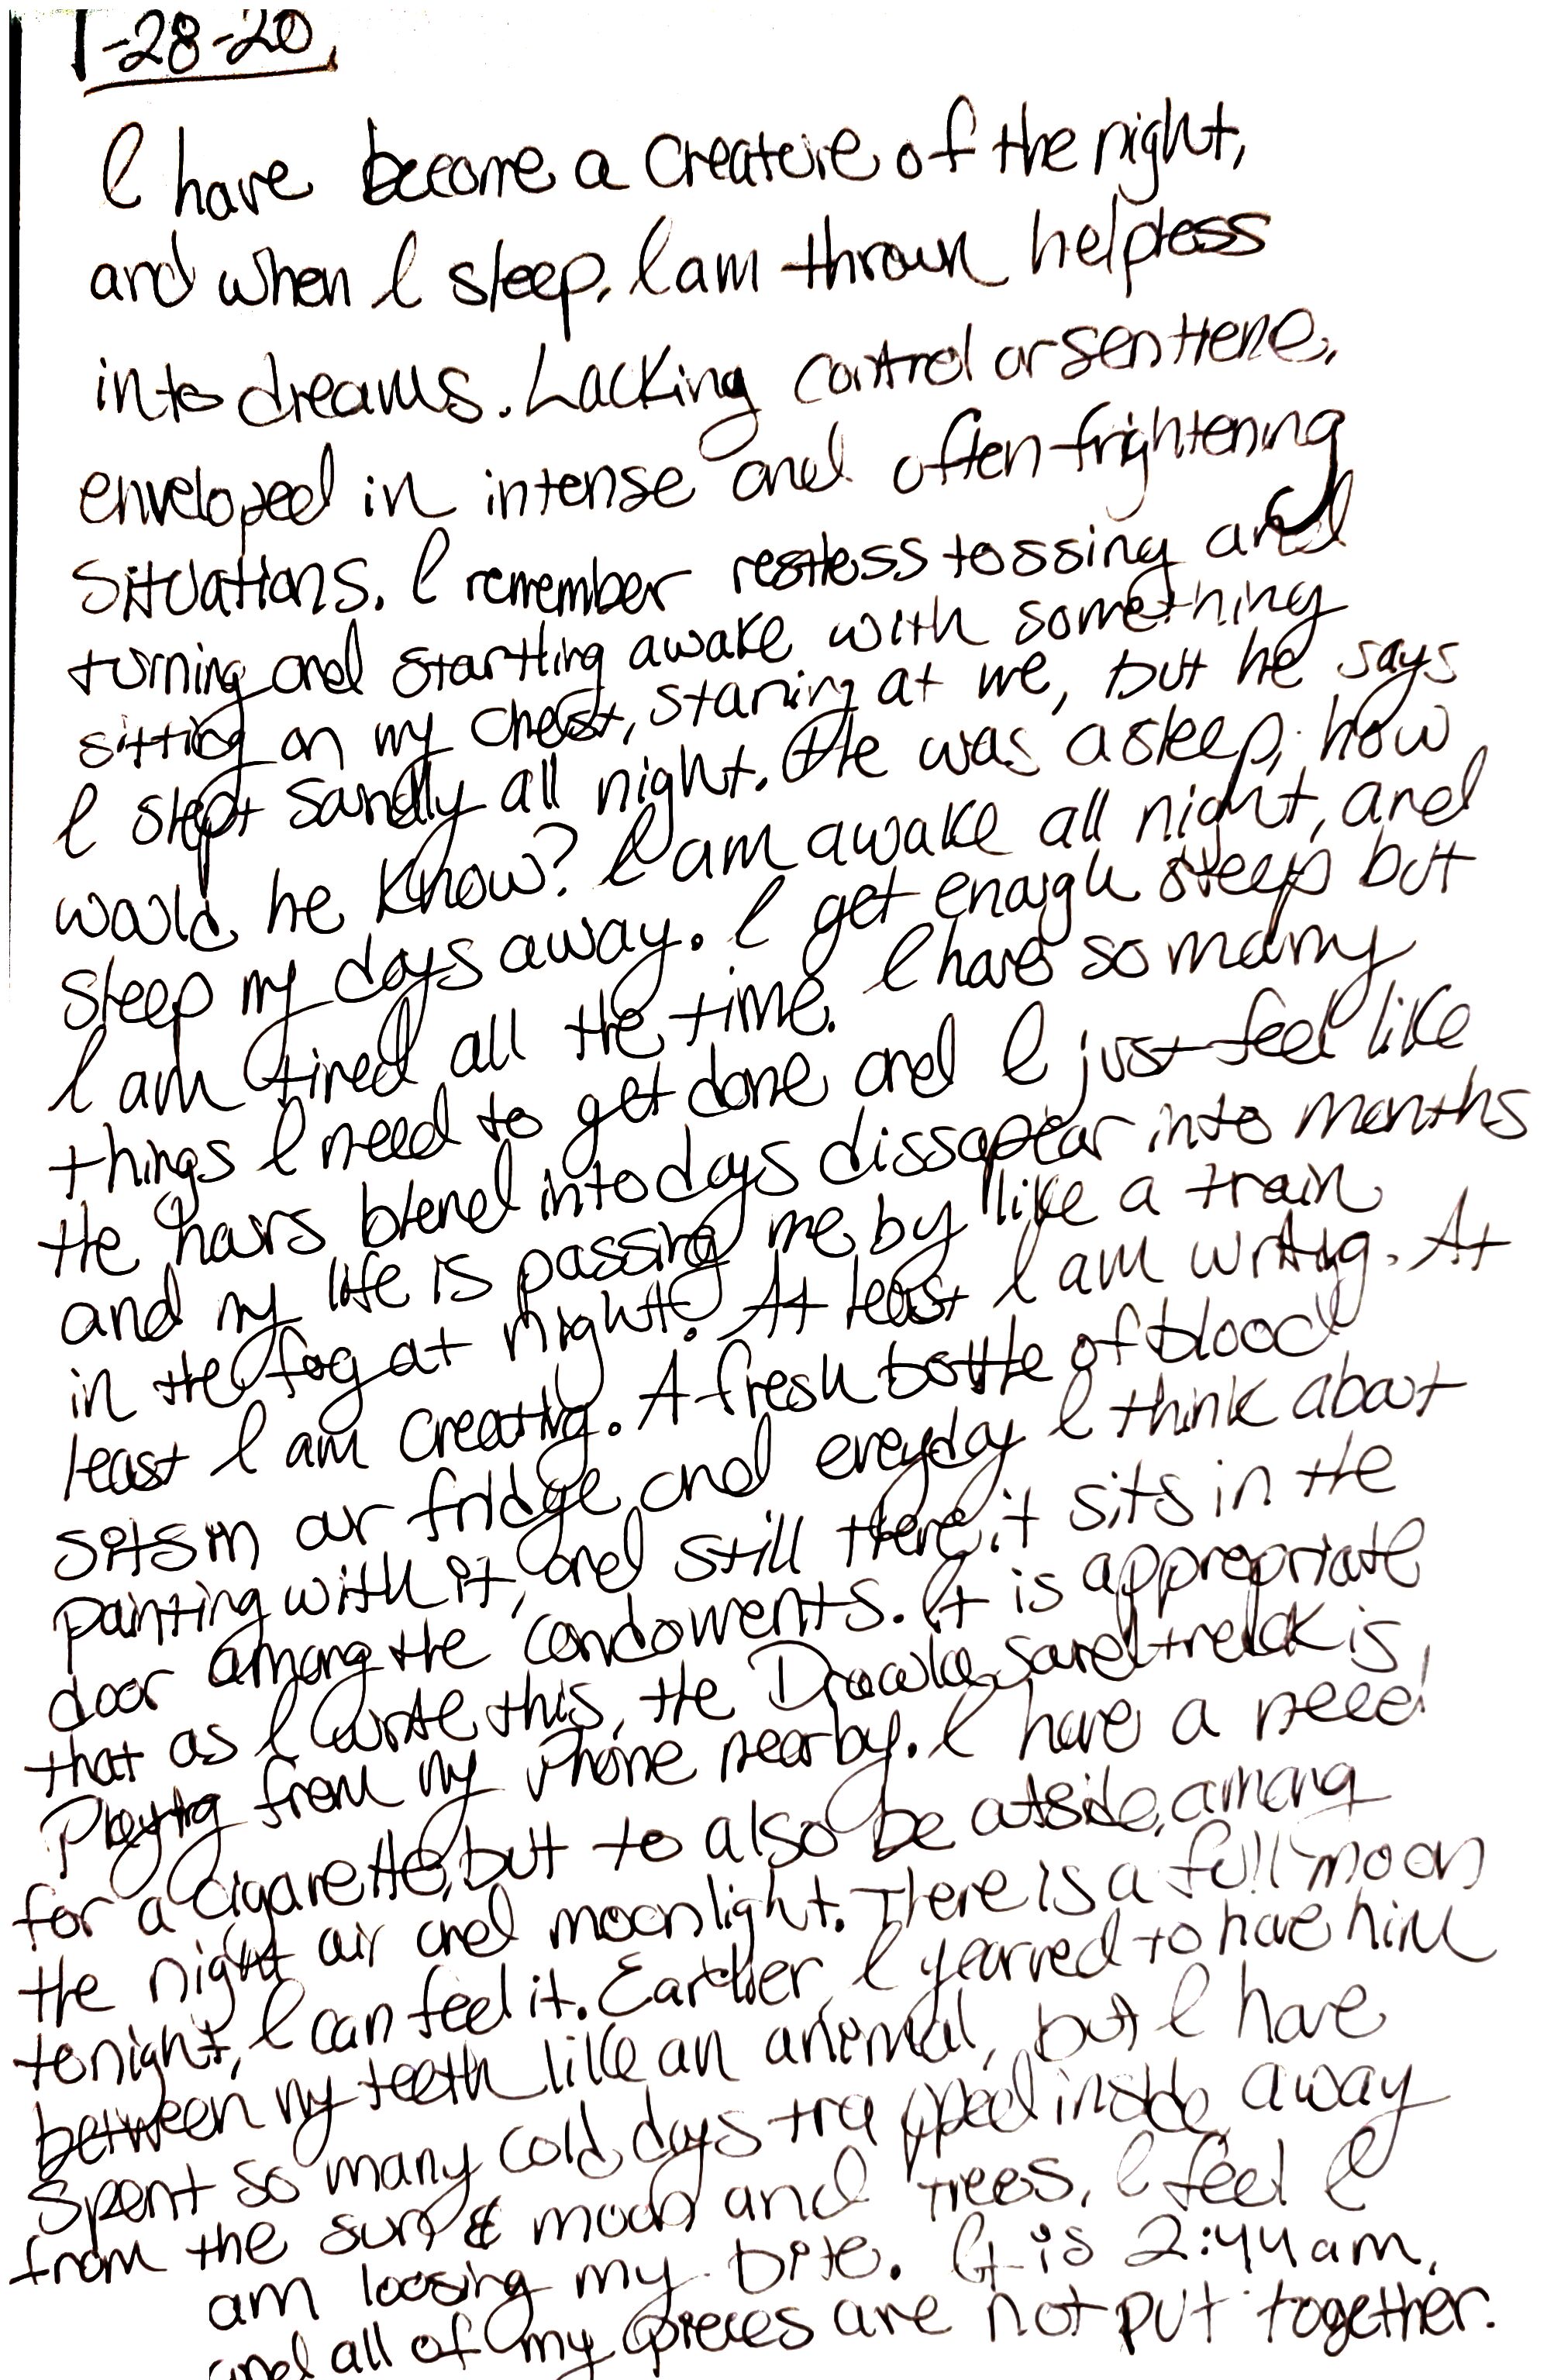 1-28-20.
I have become a creature of the night,
and when I sleep, I am thrown helpless
into dreams. Lacking control or sentiene,
enveloped in intense and often frightening
situations. I remember restless tossing and
turning and startling awake with something
sitting on my chest, staring at me, but he says
I slept soundly all night. He was asleep, how
would he know? I am awake all night, and
sleep my days away. I get enough sleep but
I am tired all the time. I have so many
things I need to get done and I just feel like
the hours blend into days dissapear into months
and my life is passing me by like a train
in the fog at night. At least I am writing. At
least I am creating. A fresh bottle of blood
sits in our fridge and everyday I think about
painting with it, and still there it sits in the
door among the condoments. It is appropriate
that as I write this, the Dracula soundtrack is
playing from my phone nearby. I have a need
for a cigarette, but to also be outside, among
the night air and moonlight. There is a full moon
tonight, I can feel it. Earlier I yearned to have him
between my teeth like an animal, but I have
spent so many cold days trapped inside away
from the sun & moon and trees, I feel I
am loosing my bite. It is 2:44 am,
and all of my pieces are not put together.